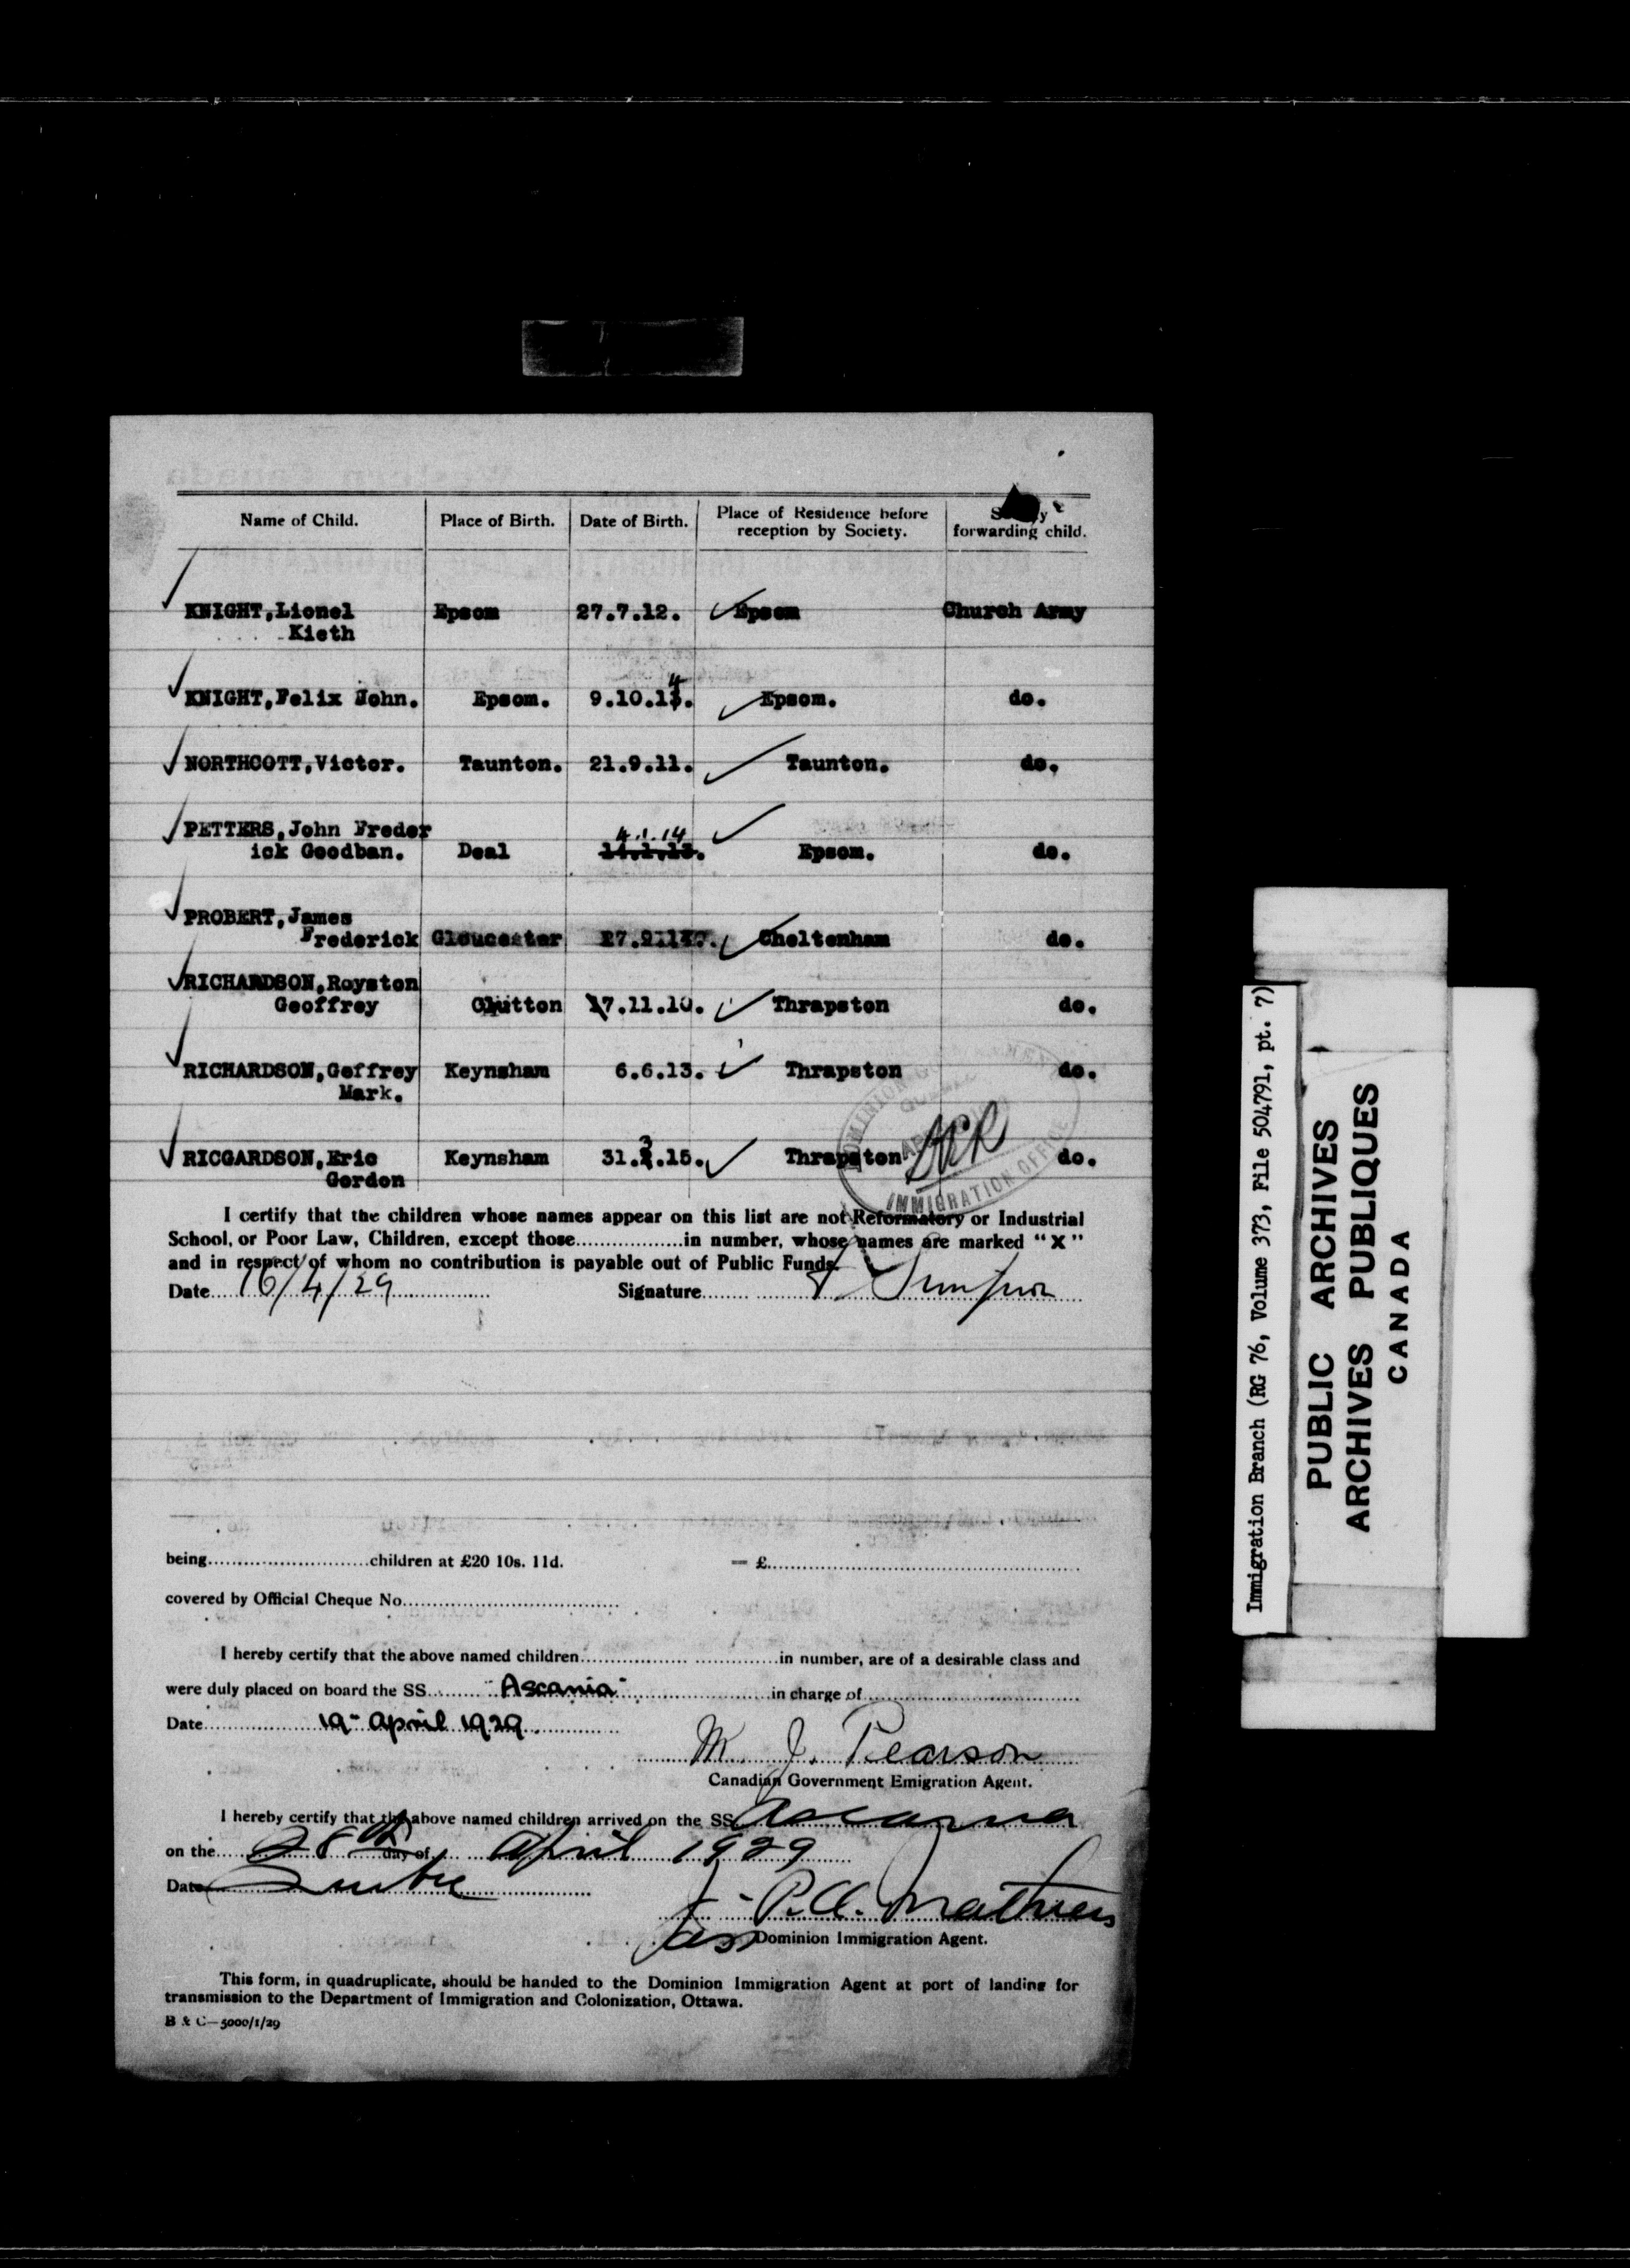 Name of Child. Place of Birth. Date of Birth. Place of Residence before reception by Society. forwarding child.
KNIGHT,Lionel Epsom 27.7.12. Epsom Church Army
Kieth
KNIGHT,Felix John. Epsom. 9.10.13. 4 Epsom. do.
NORTHCOTT,Victor. Taunton. 21.9.11. Taunton. do.
PETTERS,John Freder 4.1.14
ick Goodban. Deal 14.1.13. Epsom. do.
PROBERT,James
Frederick Gloucester Cheltenham do.
RICHARDSON,Royston
Geoffrey Clutton 17.11.10. Thrapston do.
RICHARDSON,Geffrey Keynsham 6.6.13. Thrapston do.
Mark.
RICGARDSON,Eric Keynsham 31.3.15. Thrapston do.
Gordon
IMMIGRATION OFFICE
I certify that the children whose names appear on this list are not Reformatory or Industrial
School, or Poor Law, Children, except those..................in number, whose names are marked "X"
and in respect of whom no contribution is payable out of Public Funds.
Date 16/4/29 Signature Simpson
being...........................children at £20 10s. 11d. = £
covered by Official Cheque No.
I hereby certify that the above named children.................................in number, are of a desirable class and
were duly placed on board the SS. "Ascania" in charge of
Date 19 April 1929
M. J. Pearson
Canadian Government Emigration Agent.
I hereby certify that the above named children arrived on the SS. Ascania
on the 28th day of April 1929
Date Quebec
P.A. Mathieu
Dominion Immigration Agent.
This form, in quadruplicate, should be handed to the Dominion Immigration Agent at port of landing for
transmission to the Department of Immigration and Colonization, Ottawa.
B & C—5000/1/29
Immigration Branch (RG 76, Volume 373, File 504791, pt. 7)
PUBLIC ARCHIVES
ARCHIVES PUBLIQUES
CANADA